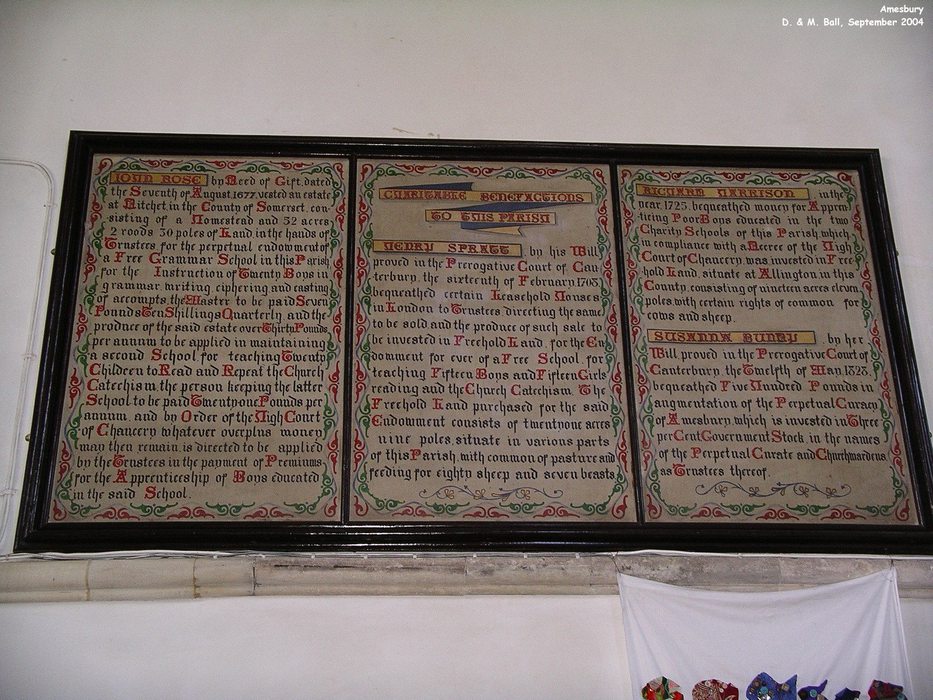 Amesbury
D. & M. Ball, September 2004
JOHN ROSE by Deed of Gift, dated
the Seventh of August 1677, vested an estate
at Ditchet in the County of Somerset, con-
sisting of a Homestead and 52 acres
2 roods 30 poles of Land in the hands of
Trustees for the perpetual endowment of
a Free Grammar School in this Parish
for the Instruction of Twenty Boys in
grammar, writing, ciphering and casting
of accompts, the Master to be paid Seven
Pounds Ten Shillings Quarterly, and the
produce of the said estate over Thirty Pounds
per annum to be applied in maintaining
a second School for teaching Twenty
Children to Read and Repeat the Church
Catechism, the person keeping the latter
School to be paid Twentyone Pounds per
annum, and by Order of the High Court
of Chancery whatever overplus money
may then remain, is directed to be applied
by the Trustees in the payment of Premiums
for the Apprenticeship of Boys educated
in the said School.
CHARITABLE BENEFACTIONS
TO THIS PARISH
HENRY SPRATT by his Will
proved in the Prerogative Court of Can-
terbury, the sixteenth of February, 1708,
bequeathed certain Leasehold Houses
in London to Trustees directing the same
to be sold, and the produce of such sale to
be invested in Freehold Land, for the En-
dowment for ever of a Free School, for
teaching Fifteen Boys and Fifteen Girls
reading and the Church Catechism. The
Freehold Land purchased for the said
Endowment consists of twentyone acres
nine poles, situate in various parts
of this Parish, with common of pasture and
feeding for eighty sheep and seven beasts.
RICHARD HARRISON in the
year 1725, bequeathed money for Appren-
ticing Poor Boys educated in the two
Charity Schools of this Parish, which
in compliance with a Decree of the High
Court of Chancery, was invested in Free-
hold Land, situate at Allington in this
County, consisting of nineteen acres eleven
poles, with certain rights of common for
cows and sheep.
SUSANNA BUNDY by her
Will proved in the Prerogative Court of
Canterbury, the Twelfth of May, 1828,
bequeathed Five Hundred Pounds in
augmentation of the Perpetual Curacy
of Amesbury, which is invested in Three
per Cent Government Stock in the names
of the Perpetual Curate and Churchwardens
as Trustees thereof.